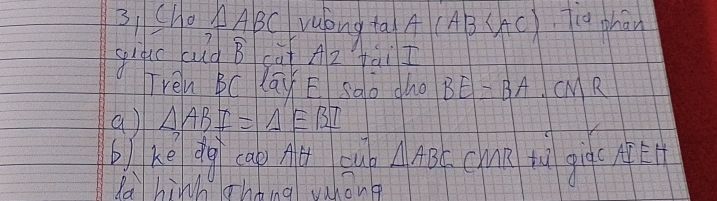 3, Cho Δ ABC vuông tại A (AB < AC). Tia phân
giác của B̂ cắt AC tại I
Trên BC lấy E sao cho BE = BA. CMR
a) ΔABI = ΔEBI
b) kẻ đg cao AH của ΔABC CMR tứ giác AIEH
là hình thang vuông